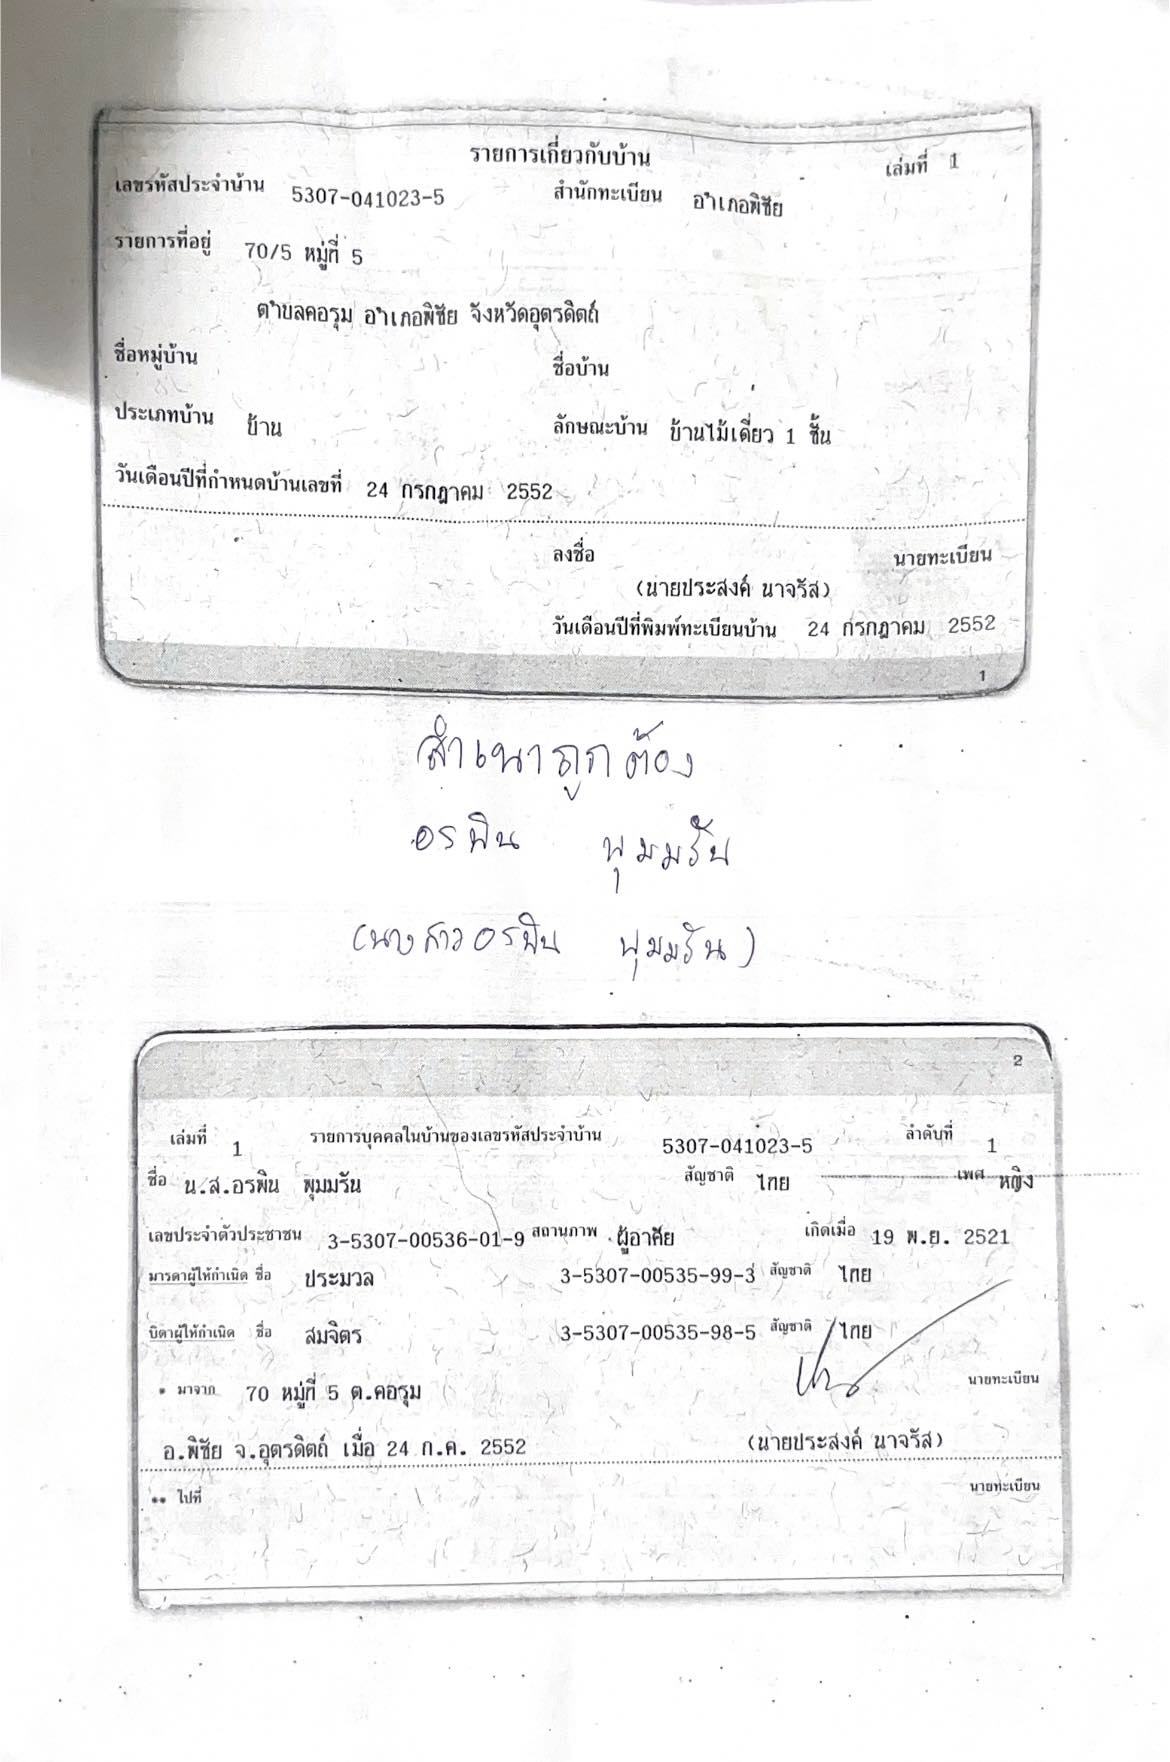 รายการเกี่ยวกับบ้าน เล่มที่ 1
เลขรหัสประจำบ้าน 5307-041023-5 สำนักทะเบียน อำเภอพิชัย
รายการที่อยู่ 70/5 หมู่ที่ 5
ตำบลคอรุม อำเภอพิชัย จังหวัดอุตรดิตถ์
ชื่อหมู่บ้าน ชื่อบ้าน
ประเภทบ้าน บ้าน ลักษณะบ้าน บ้านไม้เดี่ยว 1 ชั้น
วันเดือนปีที่กำหนดบ้านเลขที่ 24 กรกฎาคม 2552
ลงชื่อ นายทะเบียน
(นายประสงค์ นาจรัส)
วันเดือนปีที่พิมพ์ทะเบียนบ้าน 24 กรกฎาคม 2552
1
สำเนาถูกต้อง
อรพิน พุมมรัน
(นางสาวอรพิน พุมมรัน)
2
เล่มที่ 1 รายการบุคคลในบ้านของเลขรหัสประจำบ้าน 5307-041023-5 ลำดับที่ 1
ชื่อ น.ส.อรพิน พุมมรัน สัญชาติ ไทย เพศ หญิง
เลขประจำตัวประชาชน 3-5307-00536-01-9 สถานภาพ ผู้อาศัย เกิดเมื่อ 19 พ.ย. 2521
มารดาผู้ให้กำเนิด ชื่อ ประมวล 3-5307-00535-99-3 สัญชาติ ไทย
บิดาผู้ให้กำเนิด ชื่อ สมจิตร 3-5307-00535-98-5 สัญชาติ ไทย
* มาจาก 70 หมู่ที่ 5 ต.คอรุม นายทะเบียน
อ.พิชัย จ.อุตรดิตถ์ เมื่อ 24 ก.ค. 2552 (นายประสงค์ นาจรัส)
** ไปที่ นายทะเบียน